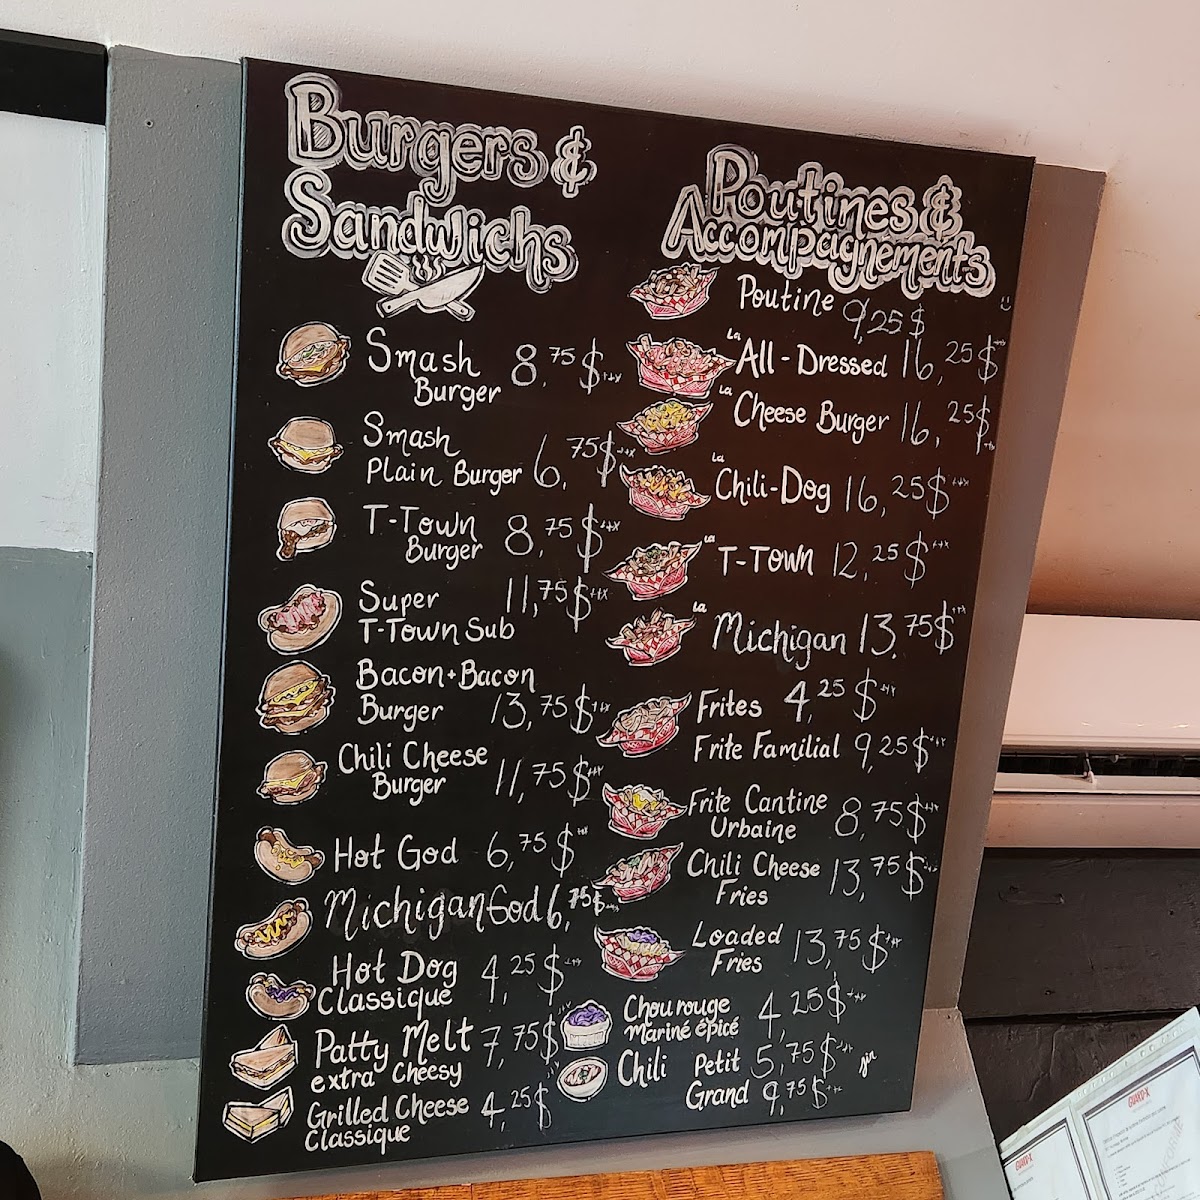 Burgers &
Sandwichs
Smash 8,75$+tx
Burger
Smash
Plain Burger 6,75$+tx
T-Town 8,75$+tx
Burger
Super 11,75$+tx
T-Town Sub
Bacon+Bacon
Burger 13,75$+tx
Chili Cheese
Burger 11,75$+tx
Hot God 6,75$+tx
Michigan God 6,75$+tx
Hot Dog 4,25$+tx
Classique
Patty Melt 7,75$
extra Cheesy
Grilled Cheese 4,25$
Classique
Poutines &
Accompagnements
Poutine 9,25$
La All-Dressed 16,25$+tx
La Cheese Burger 16,25$+tx
La Chili-Dog 16,25$+tx
La T-Town 12,25$+tx
La Michigan 13,75$+tx
Frites 4,25$+tx
Frite Familial 9,25$+tx
Frite Cantine 8,75$+tx
Urbaine
Chili Cheese 13,75$+tx
Fries
Loaded 13,75$+tx
Fries
Chou rouge 4,25$+tx
Mariné épicé
Chili Petit 5,75$+tx
Grand 9,75$+tx
GUARD-X
GUARD-X